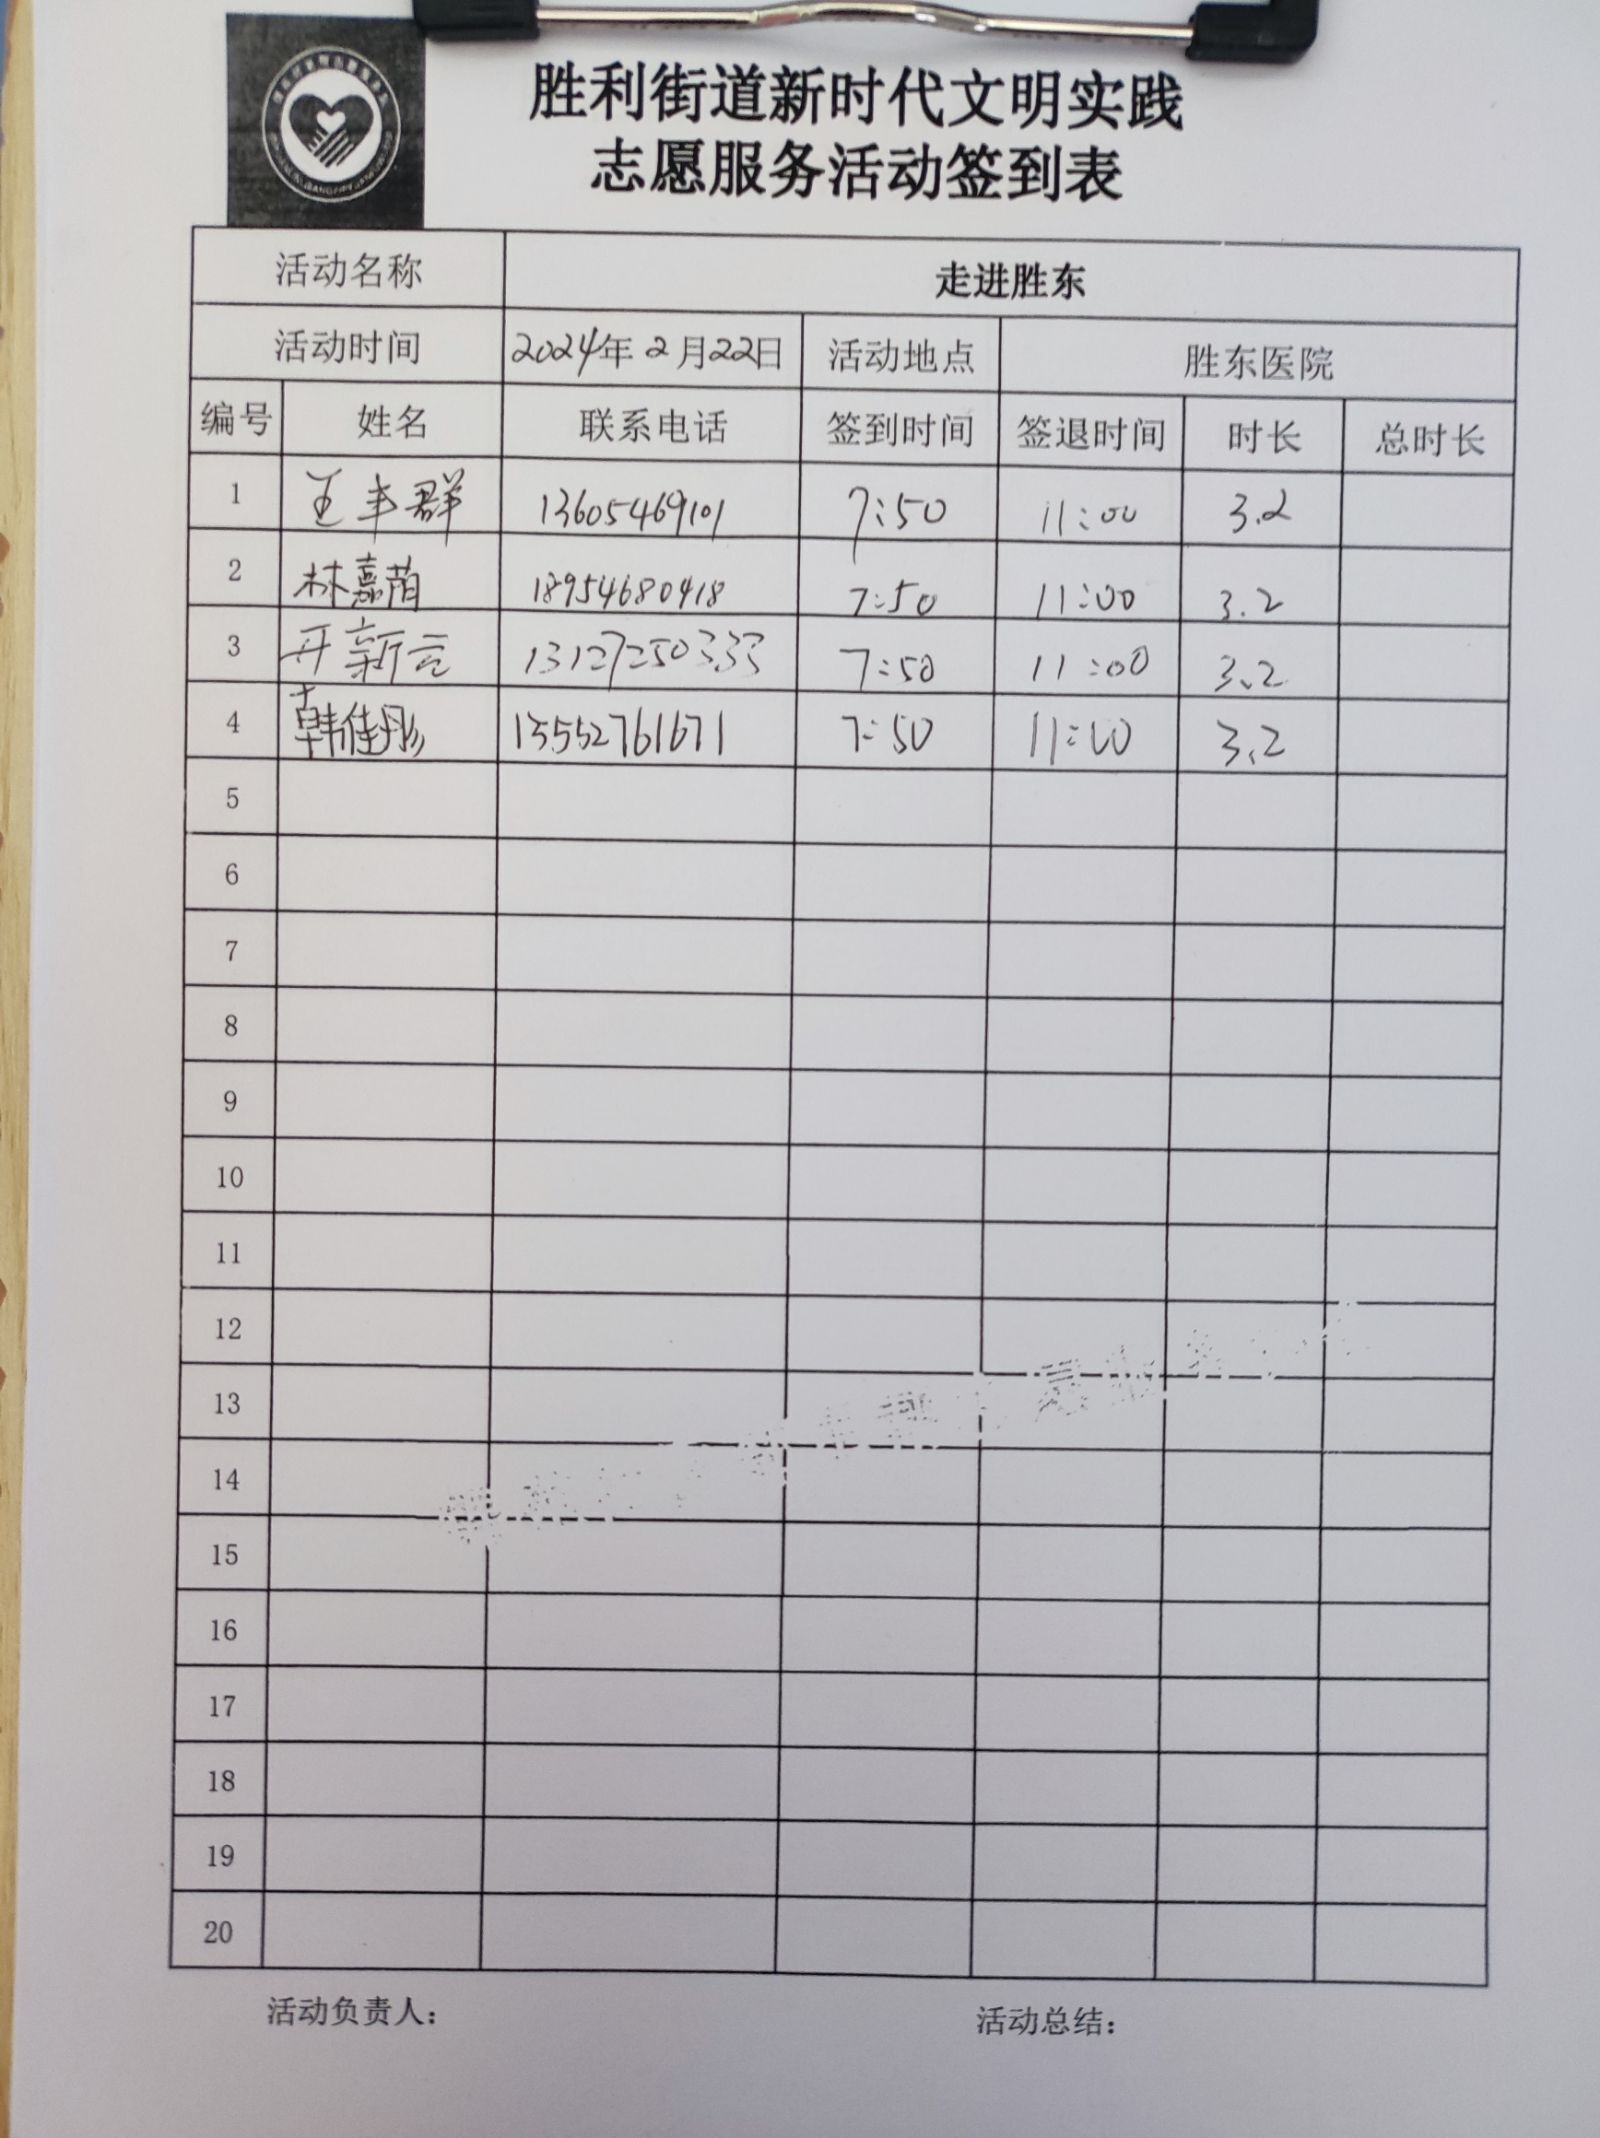 胜利街道新时代文明实践
志愿服务活动签到表
活动名称 走进胜东
活动时间 2024年2月22日 活动地点 胜东医院
编号 姓名 联系电话 签到时间 签退时间 时长 总时长
1 王丰群 13605469101 7:50 11:00 3.2
2 林嘉荫 18954680418 7:50 11:00 3.2
3 开新云 13127250333 7:50 11:00 3.2
4 韩佳彤 13552761671 7:50 11:00 3.2
5
6
7
8
9
10
11
12
13
14
15
16
17
18
19
20
活动负责人： 活动总结：